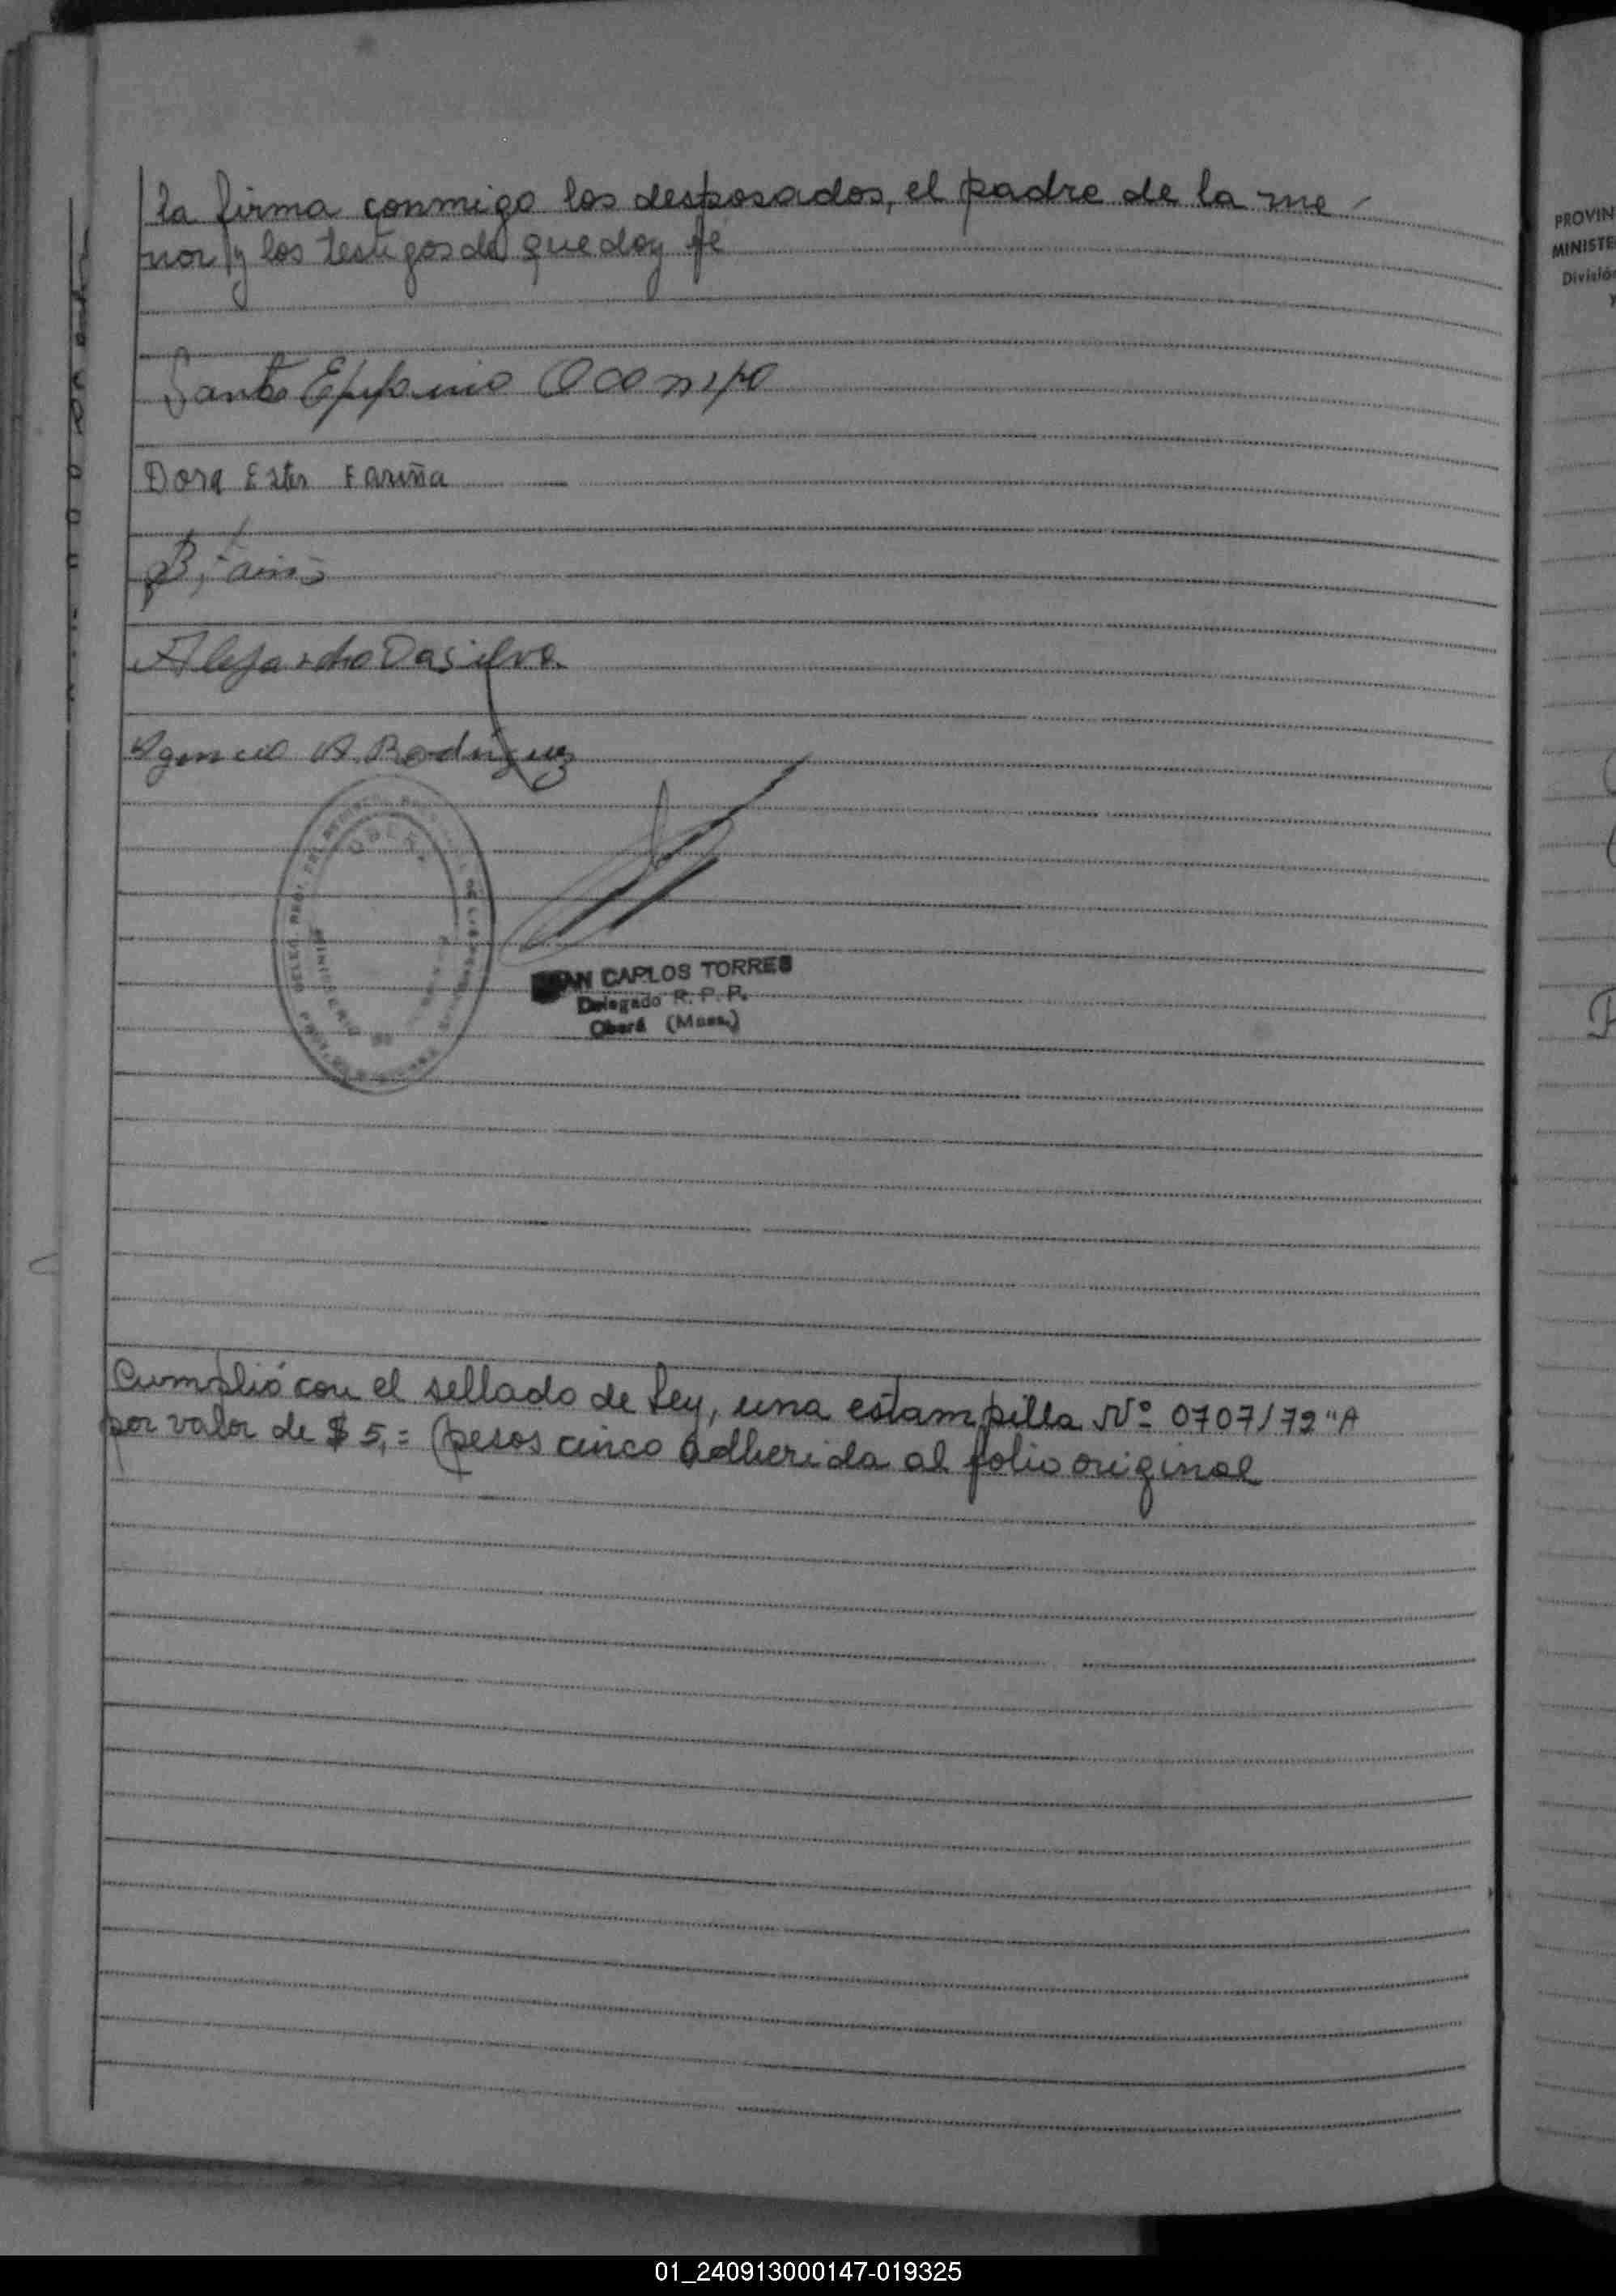 la firma conmigo los desposados, el padre de la me
nor y los testigos de que doy fé
Santo Epifanio Ocampo
Dora Ester Fariña
Alejandro Dasilva
A. Rodriguez
OBERA
MINISTERIO
AN CARLOS TORRES
Delegado R. P. P.
Oberá (Mnes.)
Cumplió con el sellado de Ley, una estampilla Nº 0707179 "A
por valor de $ 5,= (pesos cinco adherida al folio original
PROVIN
MINISTE
División
01_240913000147-019325